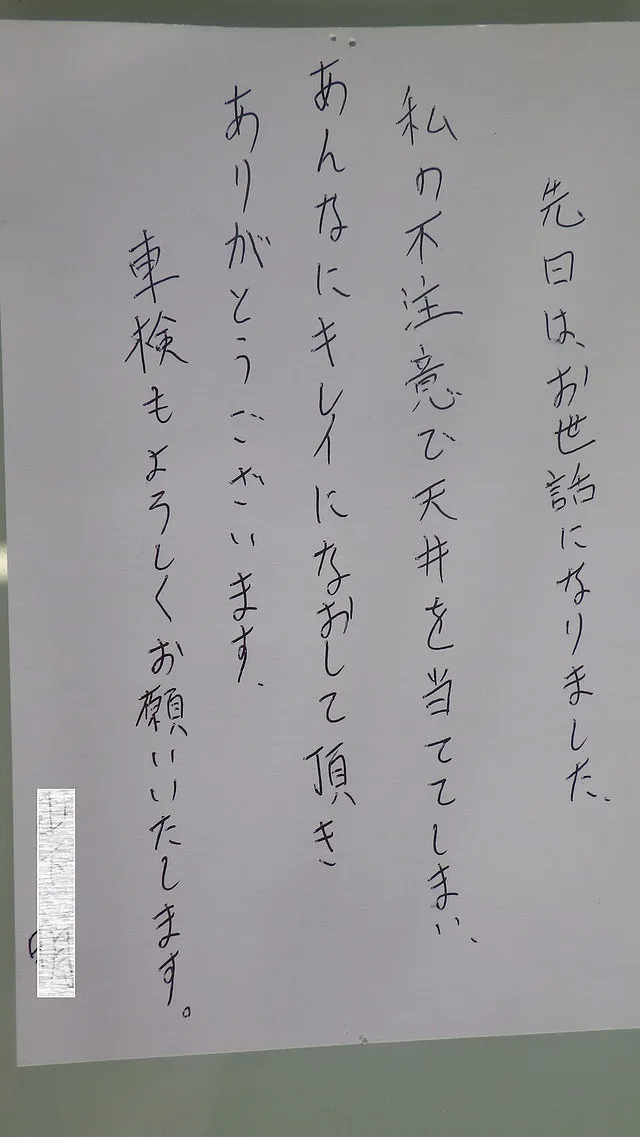 先日は、お世話になりました、
私の不注意で天井を当ててしまい、
あんなにキレイになおして頂き
ありがとうございます、
車検もよろしくお願いいたします。